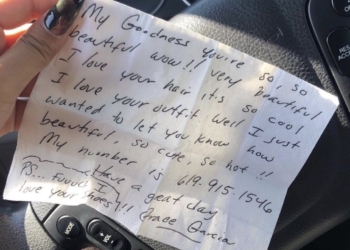 My Goodness you're so, so
beautiful wow!! very beautiful
I love your hair it's so cool
I love your outfit well I just
wanted to let you know how
beautiful, so cute, so hot !!
My number is 619-915-1546
Have a great day
PS...
love your !! Grace Garcia
RES
MODE